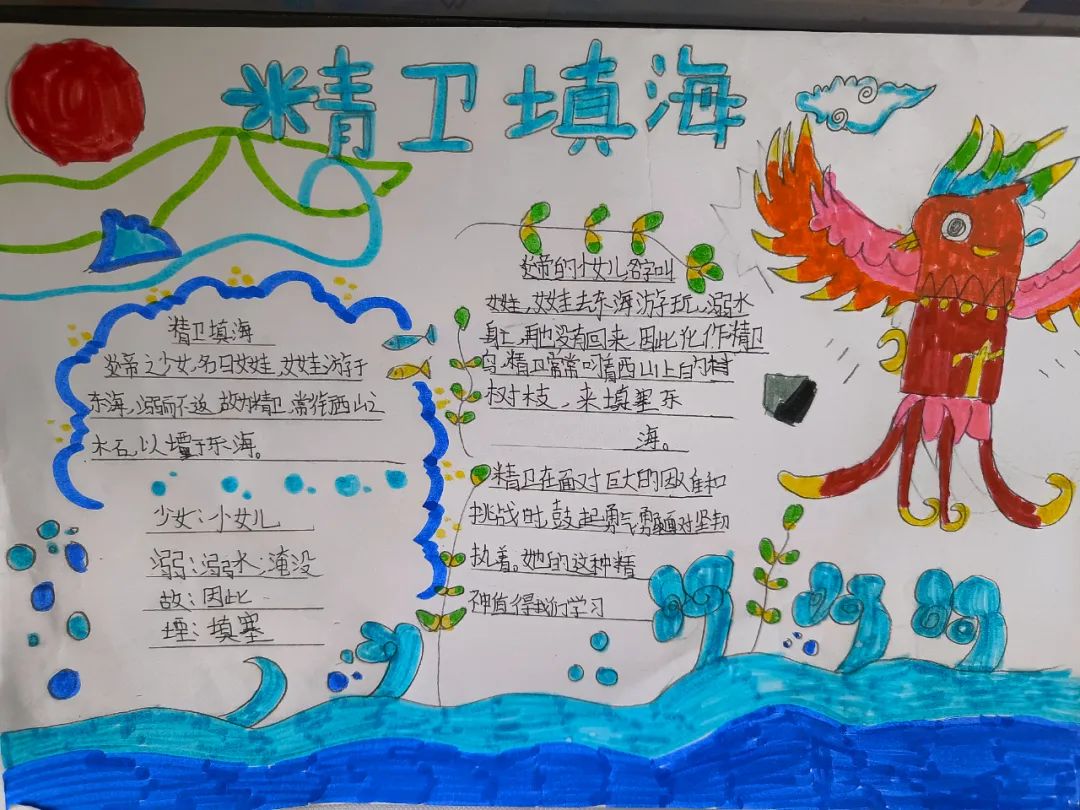 精卫填海
精卫填海
炎帝之少女,名曰女娃,女娃游于
东海,溺而不返,故为精卫,常衔西山之
木石,以堙于东海。
少女:小女儿
溺:溺水;淹没
故:因此
堙:填塞
炎帝的小女儿名字叫
女娃,女娃去东海游玩,溺水
身亡,再也没有回来,因此化作精卫
鸟,精卫常常叼着西山上的树
树枝,来填塞东
海。
精卫在面对巨大的困难和
挑战时,鼓起勇气勇敢面对坚韧
执着。她的这种精
神值得我们学习